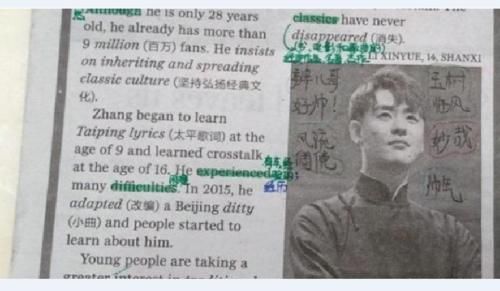 Although he is only 28 years
old, he already has more than
9 million (百万) fans. He insists
on inheriting and spreading
classic culture (坚持弘扬经典文
化).
Zhang began to learn
Taiping lyrics (太平歌词) at the
age of 9 and learned crosstalk
at the age of 16. He experienced
many difficulties. In 2015, he
adapted (改编) a Beijing ditty
(小曲) and people started to
learn about him.
Young people are taking a
greater interest in
classics have never
disappeared (消失).
LI XINYUE, 14, SHANXI
辫儿哥
好帅!
风流
倜傥
玉树
临风
妙哉
帅气
困难
经历